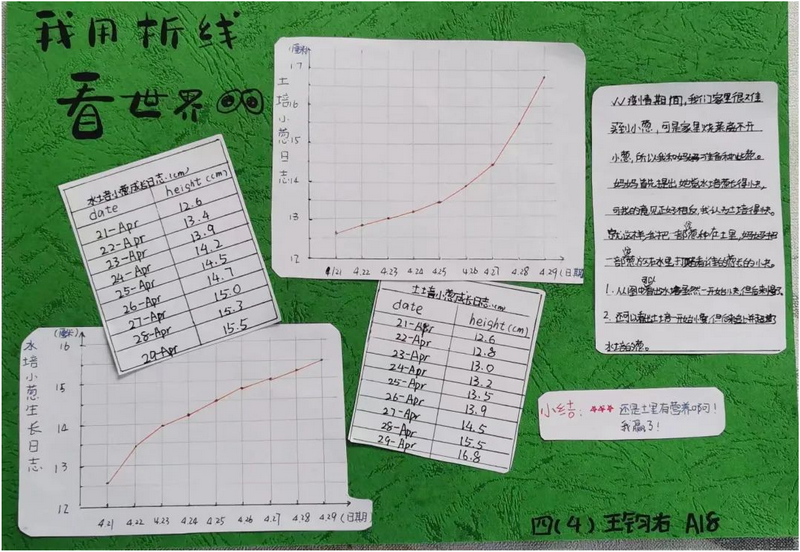 我用折线
看世界
水培小葱成长日志(cm)
date height(cm)
21-Apr 12.6
22-Apr 13.4
23-Apr 13.9
24-Apr 14.2
25-Apr 14.5
26-Apr 14.7
27-Apr 15.0
28-Apr 15.3
29-Apr 15.5
(厘米)
土培小葱日志
17
16
15
14
13
12
4.21 4.22 4.23 4.24 4.25 4.26 4.27 4.28 4.29 (日期)
土培小葱成长日志(cm)
date height(cm)
21-Apr 12.6
22-Apr 12.8
23-Apr 13.0
24-Apr 13.2
25-Apr 13.5
26-Apr 13.9
27-Apr 14.5
28-Apr 15.5
29-Apr 16.8
(厘米)
水培小葱生长日志
16
15
14
13
12
4.21 4.22 4.23 4.24 4.25 4.26 4.27 4.28 4.29 (日期)
疫情期间,我们家里很难
买到小葱,可是家里烧菜离不开
小葱,所以我和妈妈准备种些葱。
妈妈首先提出她觉水培葱长得快。
可我的意见正好相反,我认为土培得快。
部葱种在土里,妈妈把
一部葱放在水里
1.从图中看出水培虽然一开始快,但后来慢
2.还可以看出土培一开始慢,但后来
水培的葱。
小结:*** 还是土里有营养啊!
我赢了!
四(4) 王钧右 A18